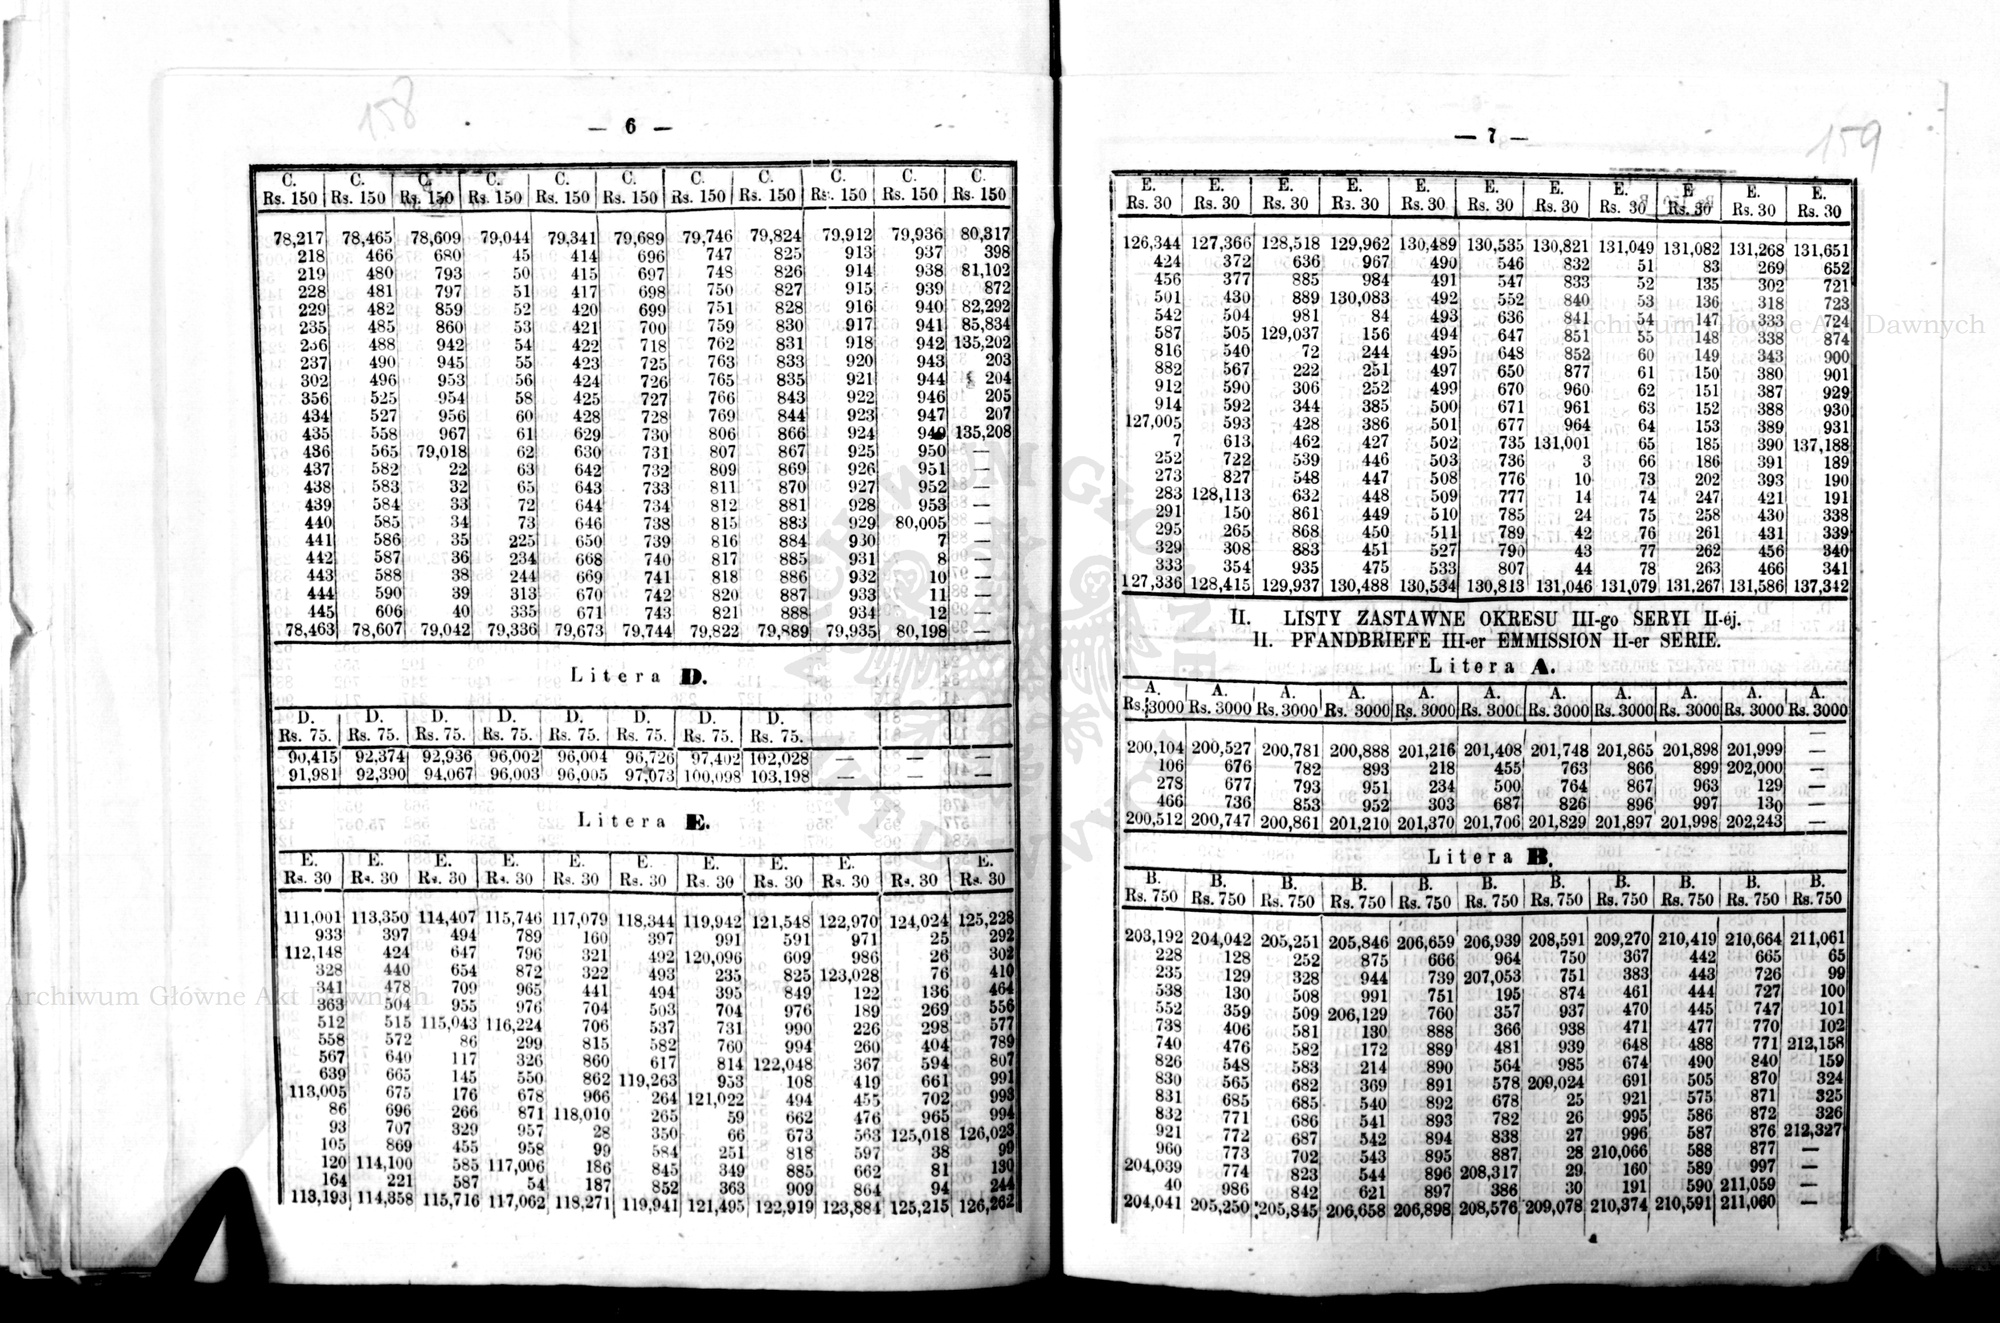 158
— 6 —
C. C. C. C. C. C. C. C. C. C. C.
Rs. 150 Rs. 150 Rs. 150 Rs. 150 Rs. 150 Rs. 150 Rs. 150 Rs. 150 Rs. 150 Rs. 150 Rs. 150
78,217 78,465 78,609 79,044 79,341 79,689 79,746 79,824 79,912 79,936 80,317
218 466 680 45 414 696 747 825 913 937 398
219 480 793 50 415 697 748 826 914 938 81,102
228 481 797 51 417 698 750 827 915 939 872
229 482 859 52 420 699 751 828 916 940 82,292
235 485 860 53 421 700 759 830 917 941 85,834
236 488 942 54 422 718 762 831 918 942 135,202
237 490 945 55 423 725 763 833 920 943 203
302 496 953 56 424 726 765 835 921 944 204
356 525 954 58 425 727 766 843 922 946 205
434 527 956 60 428 728 769 844 923 947 207
435 558 967 61 629 730 806 866 924 949 135,208
436 565 79,018 62 630 731 807 867 925 950 —
437 582 22 63 642 732 809 869 926 951 —
438 583 32 65 643 733 811 870 927 952 —
439 584 33 72 644 734 812 881 928 953 —
440 585 34 73 646 738 815 883 929 80,005 —
441 586 35 225 650 739 816 884 930 7 —
442 587 36 234 668 740 817 885 931 8 —
443 588 38 244 669 741 818 886 932 10 —
444 590 39 313 670 742 820 887 933 11 —
445 606 40 335 671 743 821 888 934 12 —
78,463 78,607 79,042 79,336 79,673 79,744 79,822 79,889 79,935 80,198 —
Litera D.
D. D. D. D. D. D. D. D.
Rs. 75. Rs. 75. Rs. 75. Rs. 75. Rs. 75. Rs. 75. Rs. 75. Rs. 75.
90,415 92,374 92,936 96,002 96,004 96,726 97,402 102,028 — — —
91,981 92,390 94,067 96,003 96,005 97,073 100,098 103,198 — — —
Litera E.
E. E. E. E. E. E. E. E. E. E. E.
Rs. 30 Rs. 30 Rs. 30 Rs. 30 Rs. 30 Rs. 30 Rs. 30 Rs. 30 Rs. 30 Rs. 30 Rs. 30
111,001 113,350 114,407 115,746 117,079 118,344 119,942 121,548 122,970 124,024 125,228
933 397 494 789 160 397 991 591 971 25 292
112,148 424 647 796 321 492 120,096 609 986 26 302
328 440 654 872 322 493 235 825 123,028 76 410
341 478 709 965 441 494 395 849 122 136 464
363 504 955 976 704 503 704 976 189 269 556
512 515 115,043 116,224 706 537 731 990 226 298 577
558 572 86 299 815 582 760 994 260 404 789
567 640 117 326 860 617 814 122,048 367 594 807
639 665 145 550 862 119,263 953 108 419 661 991
113,005 675 176 678 966 264 121,022 494 455 702 993
86 696 266 871 118,010 265 59 662 476 965 994
93 707 329 957 28 350 66 673 563 125,018 126,023
105 869 455 958 99 584 251 818 597 38 99
120 114,100 585 117,006 186 845 349 885 662 81 130
164 221 587 54 187 852 363 909 864 94 244
113,193 114,358 115,716 117,062 118,271 119,941 121,495 122,919 123,884 125,215 126,262
159
— 7 —
E. E. E. E. E. E. E. E. E E. E.
Rs. 30 Rs. 30 Rs. 30 Rs. 30 Rs. 30 Rs. 30 Rs. 30 Rs. 30 Rs. 30 Rs. 30 Rs. 30
126,344 127,366 128,518 129,962 130,489 130,535 130,821 131,049 131,082 131,268 131,651
424 372 636 967 490 546 832 51 83 269 652
456 377 885 984 491 547 833 52 135 302 721
501 430 889 130,083 492 552 840 53 136 318 723
542 504 981 84 493 636 841 54 147 333 724
587 505 129,037 156 494 647 851 55 148 338 874
816 540 72 244 495 648 852 60 149 343 900
882 567 222 251 497 650 877 61 150 380 901
912 590 306 252 499 670 960 62 151 387 929
914 592 344 385 500 671 961 63 152 388 930
127,005 593 428 386 501 677 964 64 153 389 931
7 613 462 427 502 735 131,001 65 185 390 137,188
252 722 539 446 503 736 3 66 186 391 189
273 827 548 447 508 776 10 73 202 393 190
283 128,113 632 448 509 777 14 74 247 421 191
291 150 861 449 510 785 24 75 258 430 338
295 265 868 450 511 789 42 76 261 431 339
329 308 883 451 527 790 43 77 262 456 340
333 354 935 475 533 807 44 78 263 466 341
127,336 128,415 129,937 130,488 130,534 130,813 131,046 131,079 131,267 131,586 137,342
II. LISTY ZASTAWNE OKRESU III-go SERYI II-ej.
II. PFANDBRIEFE III-er EMMISSION II-er SERIE.
Litera A.
A. A. A. A. A. A. A. A. A. A. A.
Rs. 3000 Rs. 3000 Rs. 3000 Rs. 3000 Rs. 3000 Rs. 3000 Rs. 3000 Rs. 3000 Rs. 3000 Rs. 3000 Rs. 3000
200,104 200,527 200,781 200,888 201,216 201,408 201,748 201,865 201,898 201,999 —
106 676 782 893 218 455 763 866 899 202,000 —
278 677 793 951 234 500 764 867 963 129 —
466 736 853 952 303 687 826 896 997 130 —
200,512 200,747 200,861 201,210 201,370 201,706 201,829 201,897 201,998 202,243 —
Litera B.
B. B. B. B. B. B. B. B. B. B. B.
Rs. 750 Rs. 750 Rs. 750 Rs. 750 Rs. 750 Rs. 750 Rs. 750 Rs. 750 Rs. 750 Rs. 750 Rs. 750
203,192 204,042 205,251 205,846 206,659 206,939 208,591 209,270 210,419 210,664 211,061
228 128 252 875 666 964 750 367 442 665 65
235 129 328 944 739 207,053 751 383 443 726 99
538 130 508 991 751 195 874 461 444 727 100
552 359 509 206,129 760 357 937 470 445 747 101
738 406 581 130 888 366 938 471 477 770 102
740 476 582 172 889 481 939 648 488 771 212,158
826 548 583 214 890 564 985 674 490 840 159
830 565 682 369 891 578 209,024 691 505 870 324
831 685 685 540 892 678 25 921 575 871 325
832 771 686 541 893 782 26 995 586 872 326
921 772 687 542 894 838 27 996 587 876 212,327
960 773 702 543 895 887 28 210,066 588 877 —
204,039 774 823 544 896 208,317 29 160 589 997 —
40 986 842 621 897 386 30 191 590 211,059 —
204,041 205,250 205,845 206,658 206,898 208,576 209,078 210,374 210,591 211,060 —
Archiwum Główne Akt Dawnych
Archiwum Główne Akt Dawnych
ARCHIWUM GŁÓWNE AKT DAWNYCH